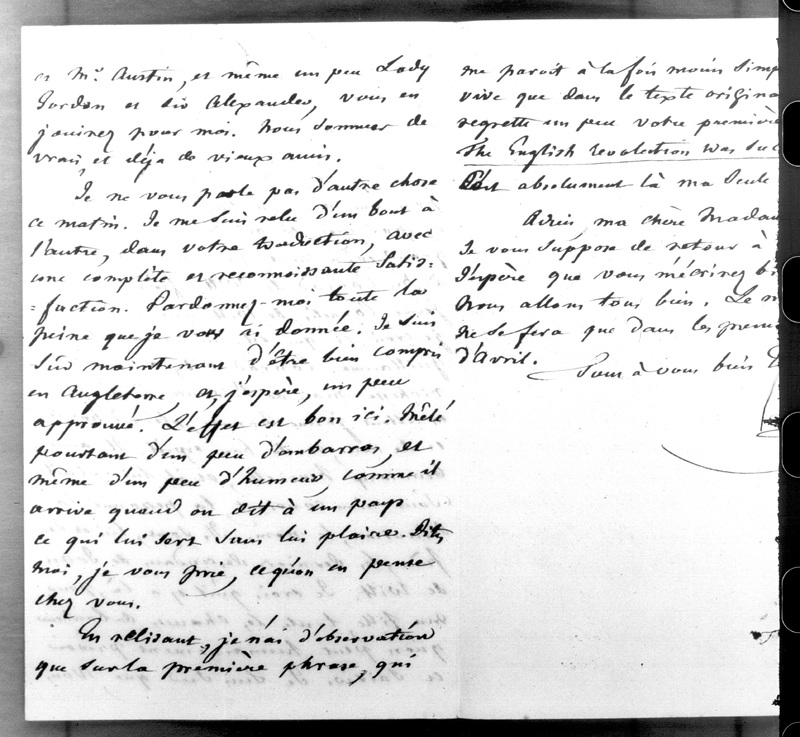 et Mr. Austin, et même un peu Lady
Gordon et Sir Alexander, vous en
jouirez pour moi. Nous sommes de
vrais, et déja de vieux amis.
Je ne vous parle pas d'autre chose
ce matin. Je me suis relu d'un bout à
l'autre, dans votre traduction, avec
une complète et reconnoissante satis=
=faction. Pardonnez-moi toute la
peine que je vous ai donnée. Je suis
sûr maintenant d'être bien compris
en Angleterre, et, j'espère, un peu
approuvé. L'effet est bon ici. Mêlé
pourtant d'un peu d'embarras, et
même d'un peu d'humeur, comme il
arrive quand on dit à un pays
ce qui lui sert sans lui plaire. Dites
moi, je vous prie, ce qu'on en pense
chez vous.
En relisant, je n'ai d'observation
que sur la première phrase, qui
me paroit à la fois moins simp
vive que dans le texte origina
regrette un peu votre première
The English revolution was suc
C'est absolument là ma seule
Adieu ma chère Madam
Je vous suppose de retour à
J'espère que vous m'écrirez bi
Nous allons tous bien. Le m
ne se fera que dans les premi
d'Avril.
Tout à vous bien